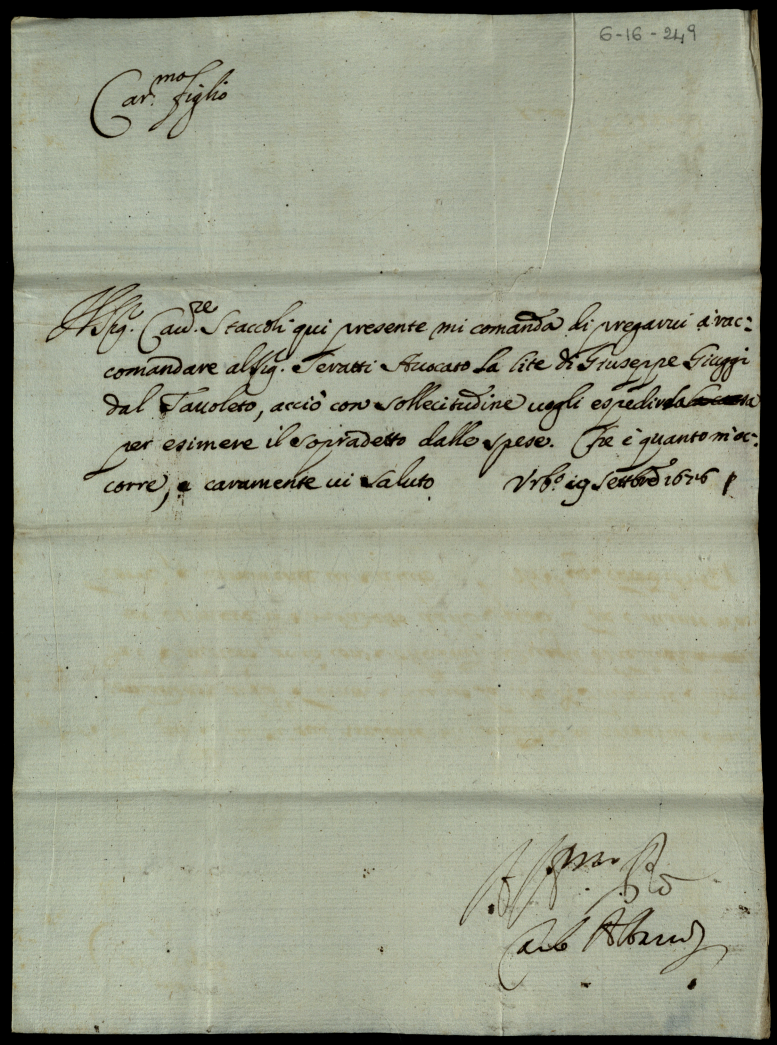 6-16-249
Car.mo figlio
Il Sig.r Cau.re Staccoli qui presente mi comanda di pregarui à rac:
comandare al Sig. Peratti Auocato la lite di Giuseppe Giuggi
dal Tauoleto, acciò con sollecitudine uogli espedirla
per esimere il sopradetto dalle spese. Che è quanto m'oc:
corre, e caramente ui saluto Vrb.o 19 Settbre 1676
Aff.mo P~re
Carlo Albani